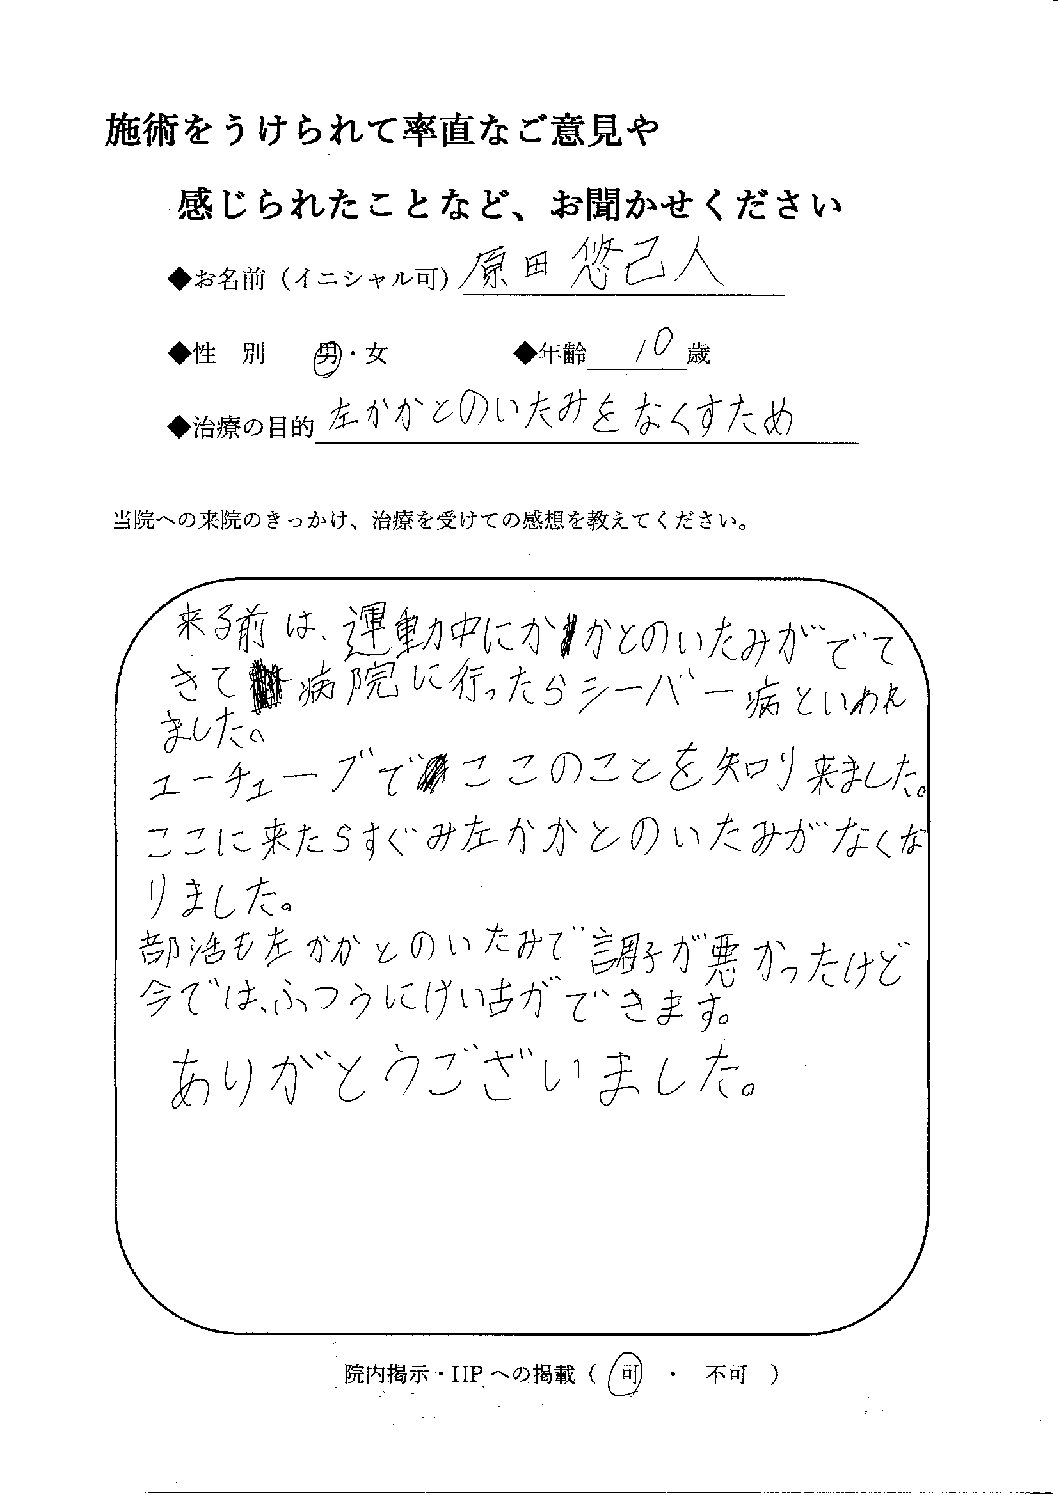 施術をうけられて率直なご意見や
感じられたことなど、お聞かせください
◆お名前（イニシャル可）原田悠己人
◆性　別　男・女　◆年齢 10 歳
◆治療の目的 左かかとのいたみをなくすため
当院への来院のきっかけ、治療を受けての感想を教えてください。
来る前は、運動中にかかとのいたみがでて
きて病院に行ったらシーバー病といわれ
ました。
ユーチューブでここのことを知り来ました。
ここに来たらすぐみ左かかとのいたみがなくな
りました。
部活も左かかとのいたみで調子が悪かったけど
今では、ふつうにけい古ができます。
ありがとうございました。
院内掲示・HPへの掲載（ 可 ・ 不可 ）